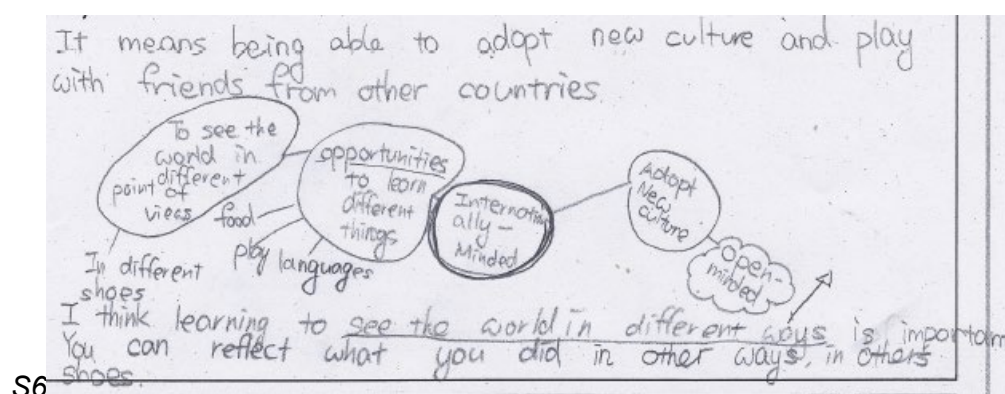 It means being able to adopt new culture and play
with friends from other countries.
To see the
world in
different
point of
views
In different
shoes
opportunities
to learn
different
things
food
play
languages
Internation
ally -
Minded
Adopt
New
culture
open-
minded
I think learning to see the world in different ways is important
You can reflect what you did in other ways, in others
shoes.
S6